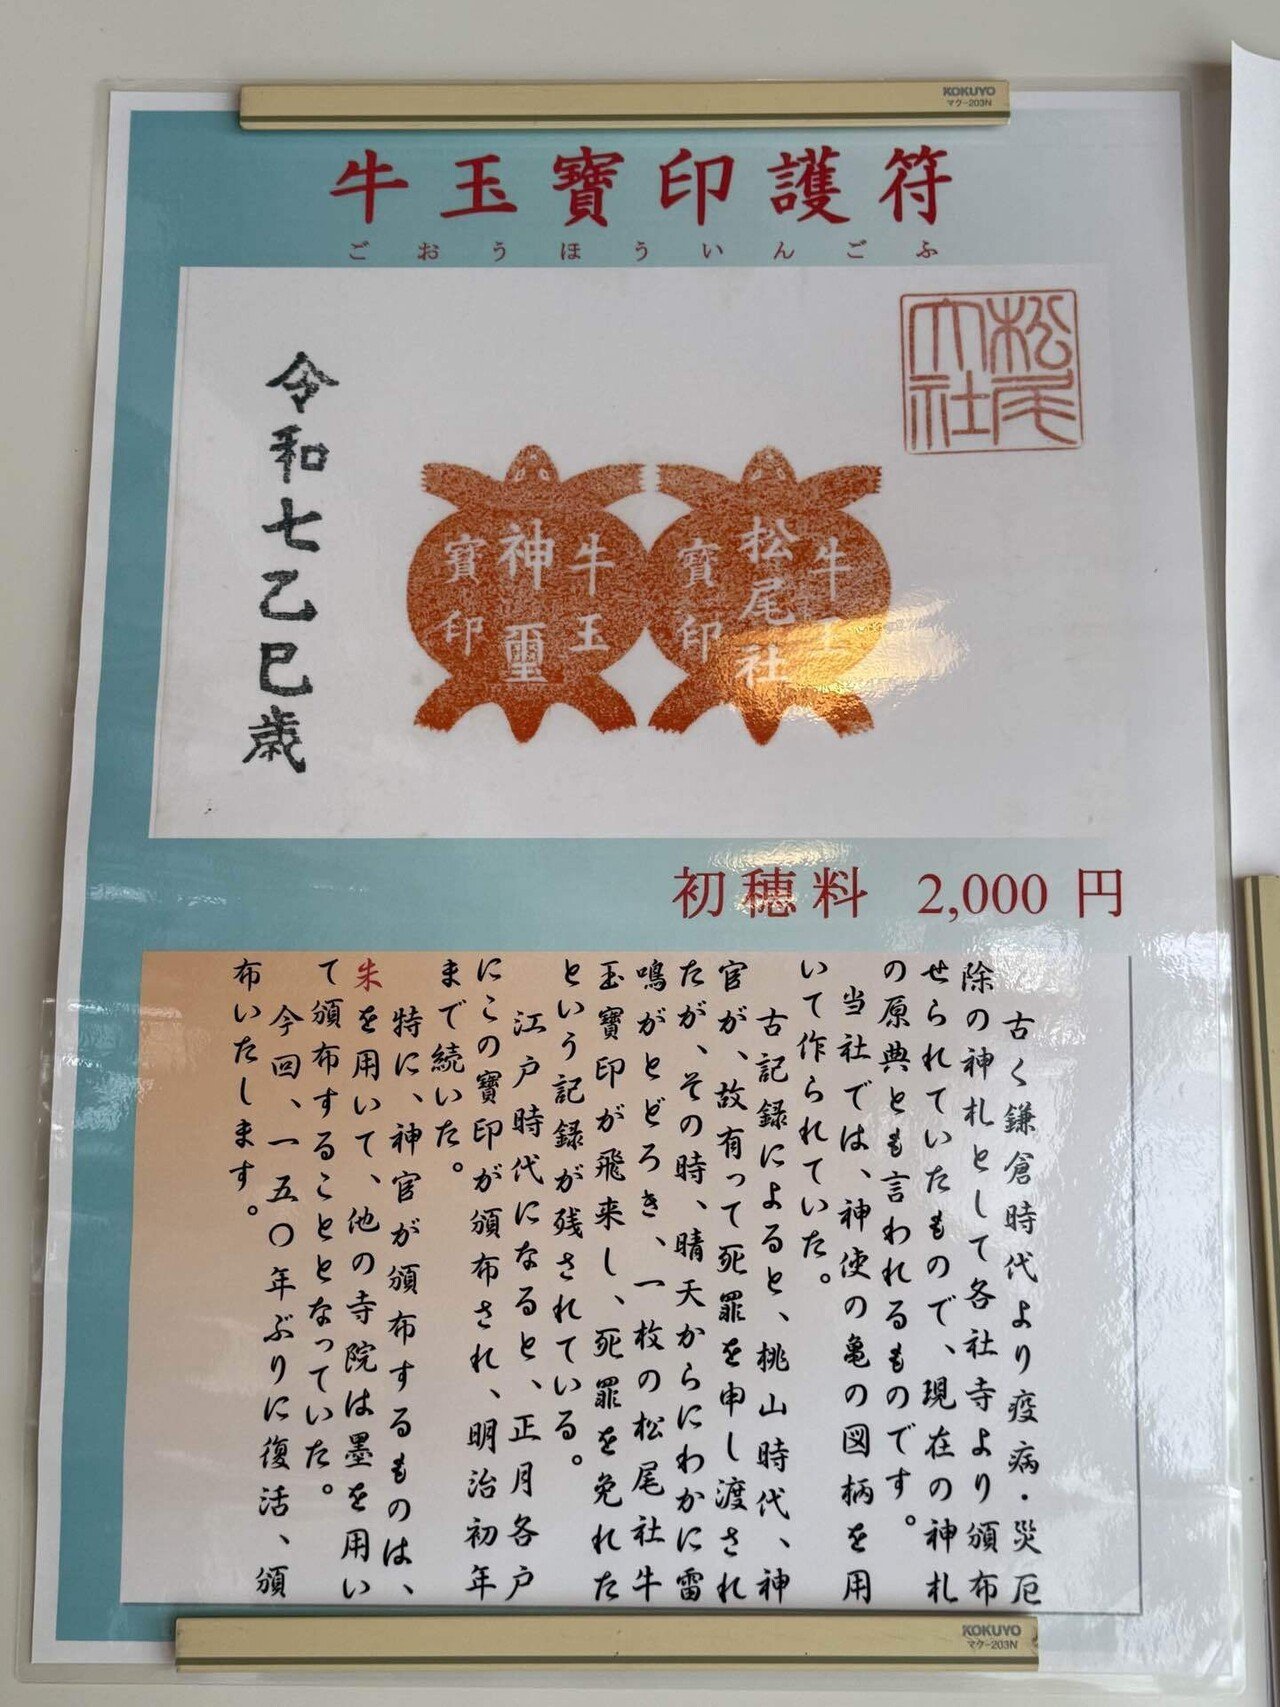 KOKUYO
マク-203N
牛玉寶印護符
ごおうほういんごふ
松尾
大社
牛王
松尾社
寶印
牛王
神璽
寶印
令和七乙巳歳
初穂料 2,000 円
古く鎌倉時代より疫病・災厄
除の神札として各社寺より頒布
せられていたもので、現在の神札
の原典とも言われるものです。
当社では、神使の亀の図柄を用
いて作られていた。
古記録によると、桃山時代、神
官が、故有って死罪を申し渡され
たが、その時、晴天からにわかに雷
鳴がとどろき、一枚の松尾社牛
玉寶印が飛来し、死罪を免れた
という記録が残されている。
江戸時代になると、正月各戸
にこの寶印が頒布され、明治初年
まで続いた。
特に、神官が頒布するものは、
朱を用いて、他の寺院は墨を用い
て頒布することとなっていた。
今回、一五〇年ぶりに復活、頒
布いたします。
KOKUYO
マク-203N